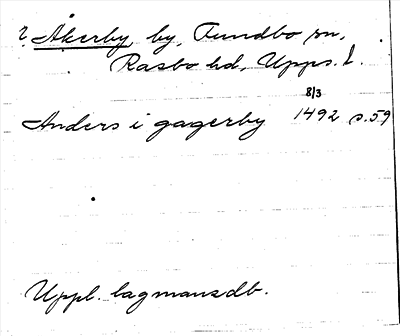 ? Åkerby by, Funbo sn,
Rasbo hd, Upps. l.
8/3
Anders i gagerby 1492 s. 59
Uppl. lagmansdb.